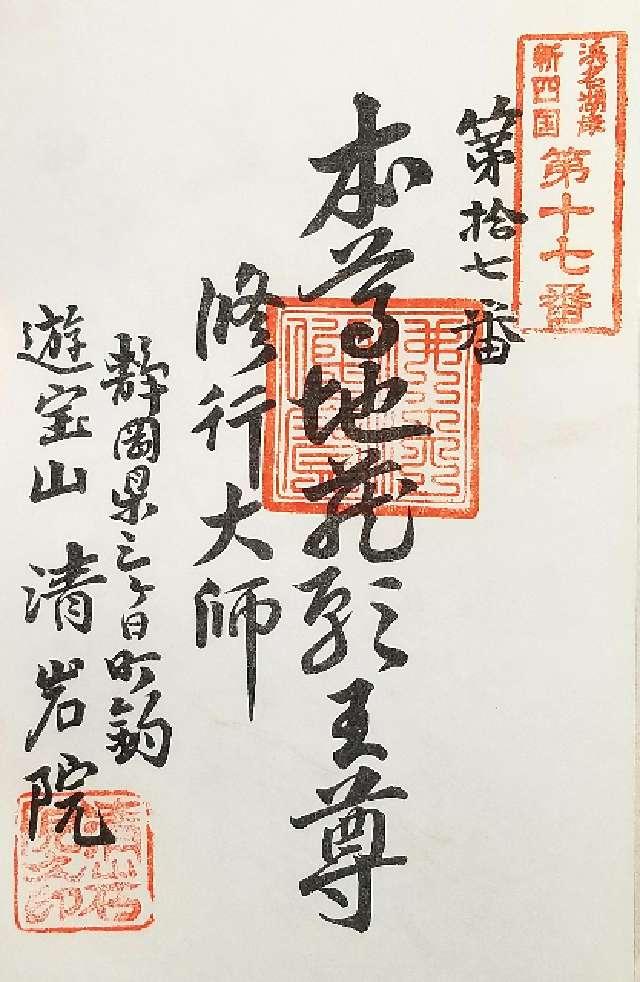 浜名湖岸
新四国
第十七番
第拾七番
本尊地蔵願王尊
修行大師
静岡県三ヶ日町釣
遊宝山 清岩院